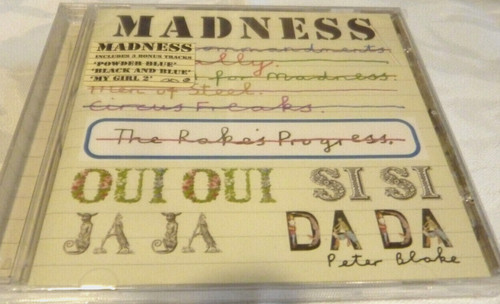 MADNESS
MADNESS
INCLUDES 3 BONUS TRACKS
'POWDER BLUE'
'BLACK AND BLUE'
'MY GIRL 2'
commandments
ally.
for Madness.
Men of Steel.
Circus Freaks.
The Rake's Progress.
OUI OUI SI SI
JA JA DA DA
Peter Blake